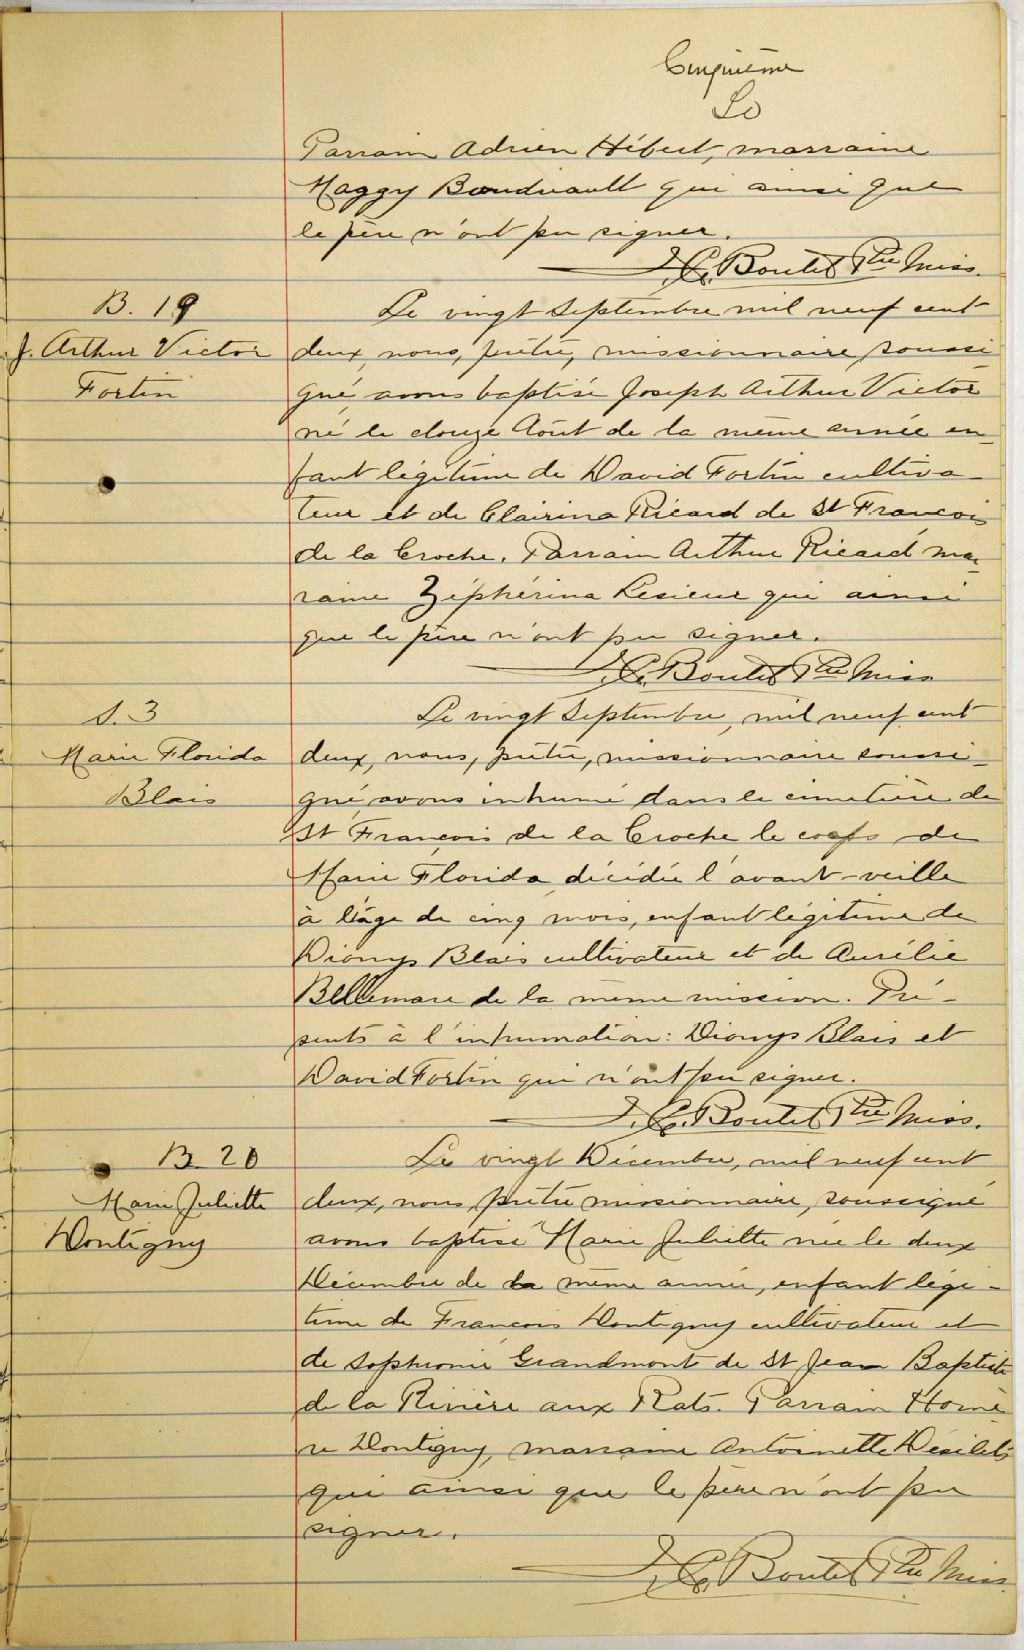 Cinquième
Parrain Adrien Hébert, marraine
Maggy Boudreault qui ainsi que
le père n'ont pu signer.
J. C. Boutet Ptre Miss.
B. 19
J. Arthur Victor
Fortin
Le vingt Septembre mil neuf cent
deux, nous, prêtre, missionnaire soussi
gné avons baptisé Joseph Arthur Victor
né le douze Août de la même année en-
fant légitime de David Fortin cultiva-
teur et de Clairina Ricard de St François
de la Croche. Parrain Arthur Ricard mar-
raine Zéphérina Lesieur qui ainsi
que le père n'ont pu signer.
J. C. Boutet Ptre Miss
S. 3
Marie Florida
Blais
Le vingt Septembre, mil neuf cent
deux, nous, prêtre, missionnaire soussi-
gné, avons inhumé dans le cimetière de
St François de la Croche le corps de
Marie Florida décédée l'avant-veille
à l'âge de cinq mois, enfant légitime de
Dionys Blais cultivateur et de Aurélie
Bellemare de la même mission. Pré-
sents à l'inhumation: Dionys Blais et
David Fortin qui n'ont pu signer.
J. C. Boutet Ptre Miss.
B. 20
Marie Juliette
Dontigny
Le vingt Décembre, mil neuf cent
deux, nous, prêtre missionnaire, soussigné
avons baptisé Marie Juliette née le deux
Décembre de la même année, enfant légi-
time de François Dontigny cultivateur et
de Sophronie Grandmont de St Jean Baptiste
de la Rivière aux Rats. Parrain Homè-
re Dontigny, marraine Antoinette Désilets
qui ainsi que le père n'ont pu
signer.
J. C. Boutet Ptre Miss.